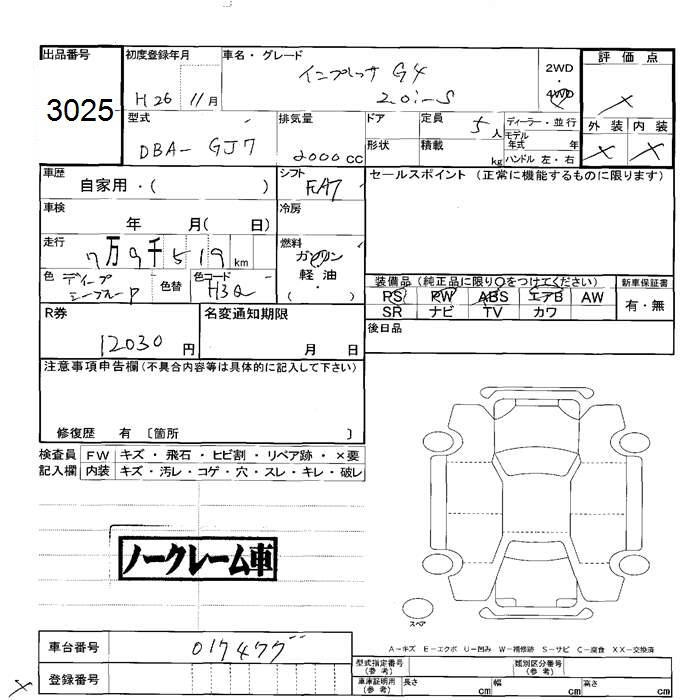 出品番号 初度登録年月 車名・グレード 2WD・4WD 評価点
3025 H26 11月 インプレッサ G4
2.0i-S
型式 排気量 ドア 定員 5人 ディーラー・並行 外装 内装
DBA- GJ7 2000 CC 形状 積載 kg モデル年式 年
ハンドル 左・右
車歴 シフト FAT セールスポイント (正常に機能するものに限ります)
自家用・( )
車検 冷房
年 月( 日)
走行 7万9千519km 燃料
ガソリン
軽油・
( )
色 ディープシーブルーP 色替 色コード H3Q
装備品 (純正品に限り○をつけてください) 新車保証書
PS PW ABS エアB AW 有・無
SR ナビ TV カワ
R券 名変通知期限 後日品
12030 円 月 日
注意事項申告欄 (不具合内容等は具体的に記入して下さい)
修復歴 有 〔箇所 〕
検査員 FW キズ・飛石・ヒビ割・リペア跡・×要
記入欄 内装 キズ・汚レ・コゲ・穴・スレ・キレ・破レ
ノークレーム車
スペア
A-キズ E-エクボ U-凹み W-補修跡 S-サビ C-腐食 XX-交換済
車台番号 017477
登録番号
型式指定番号 (参考) 類別区分番号 (参考)
車庫証明用 (参考) 長さ cm 幅 cm 高さ cm